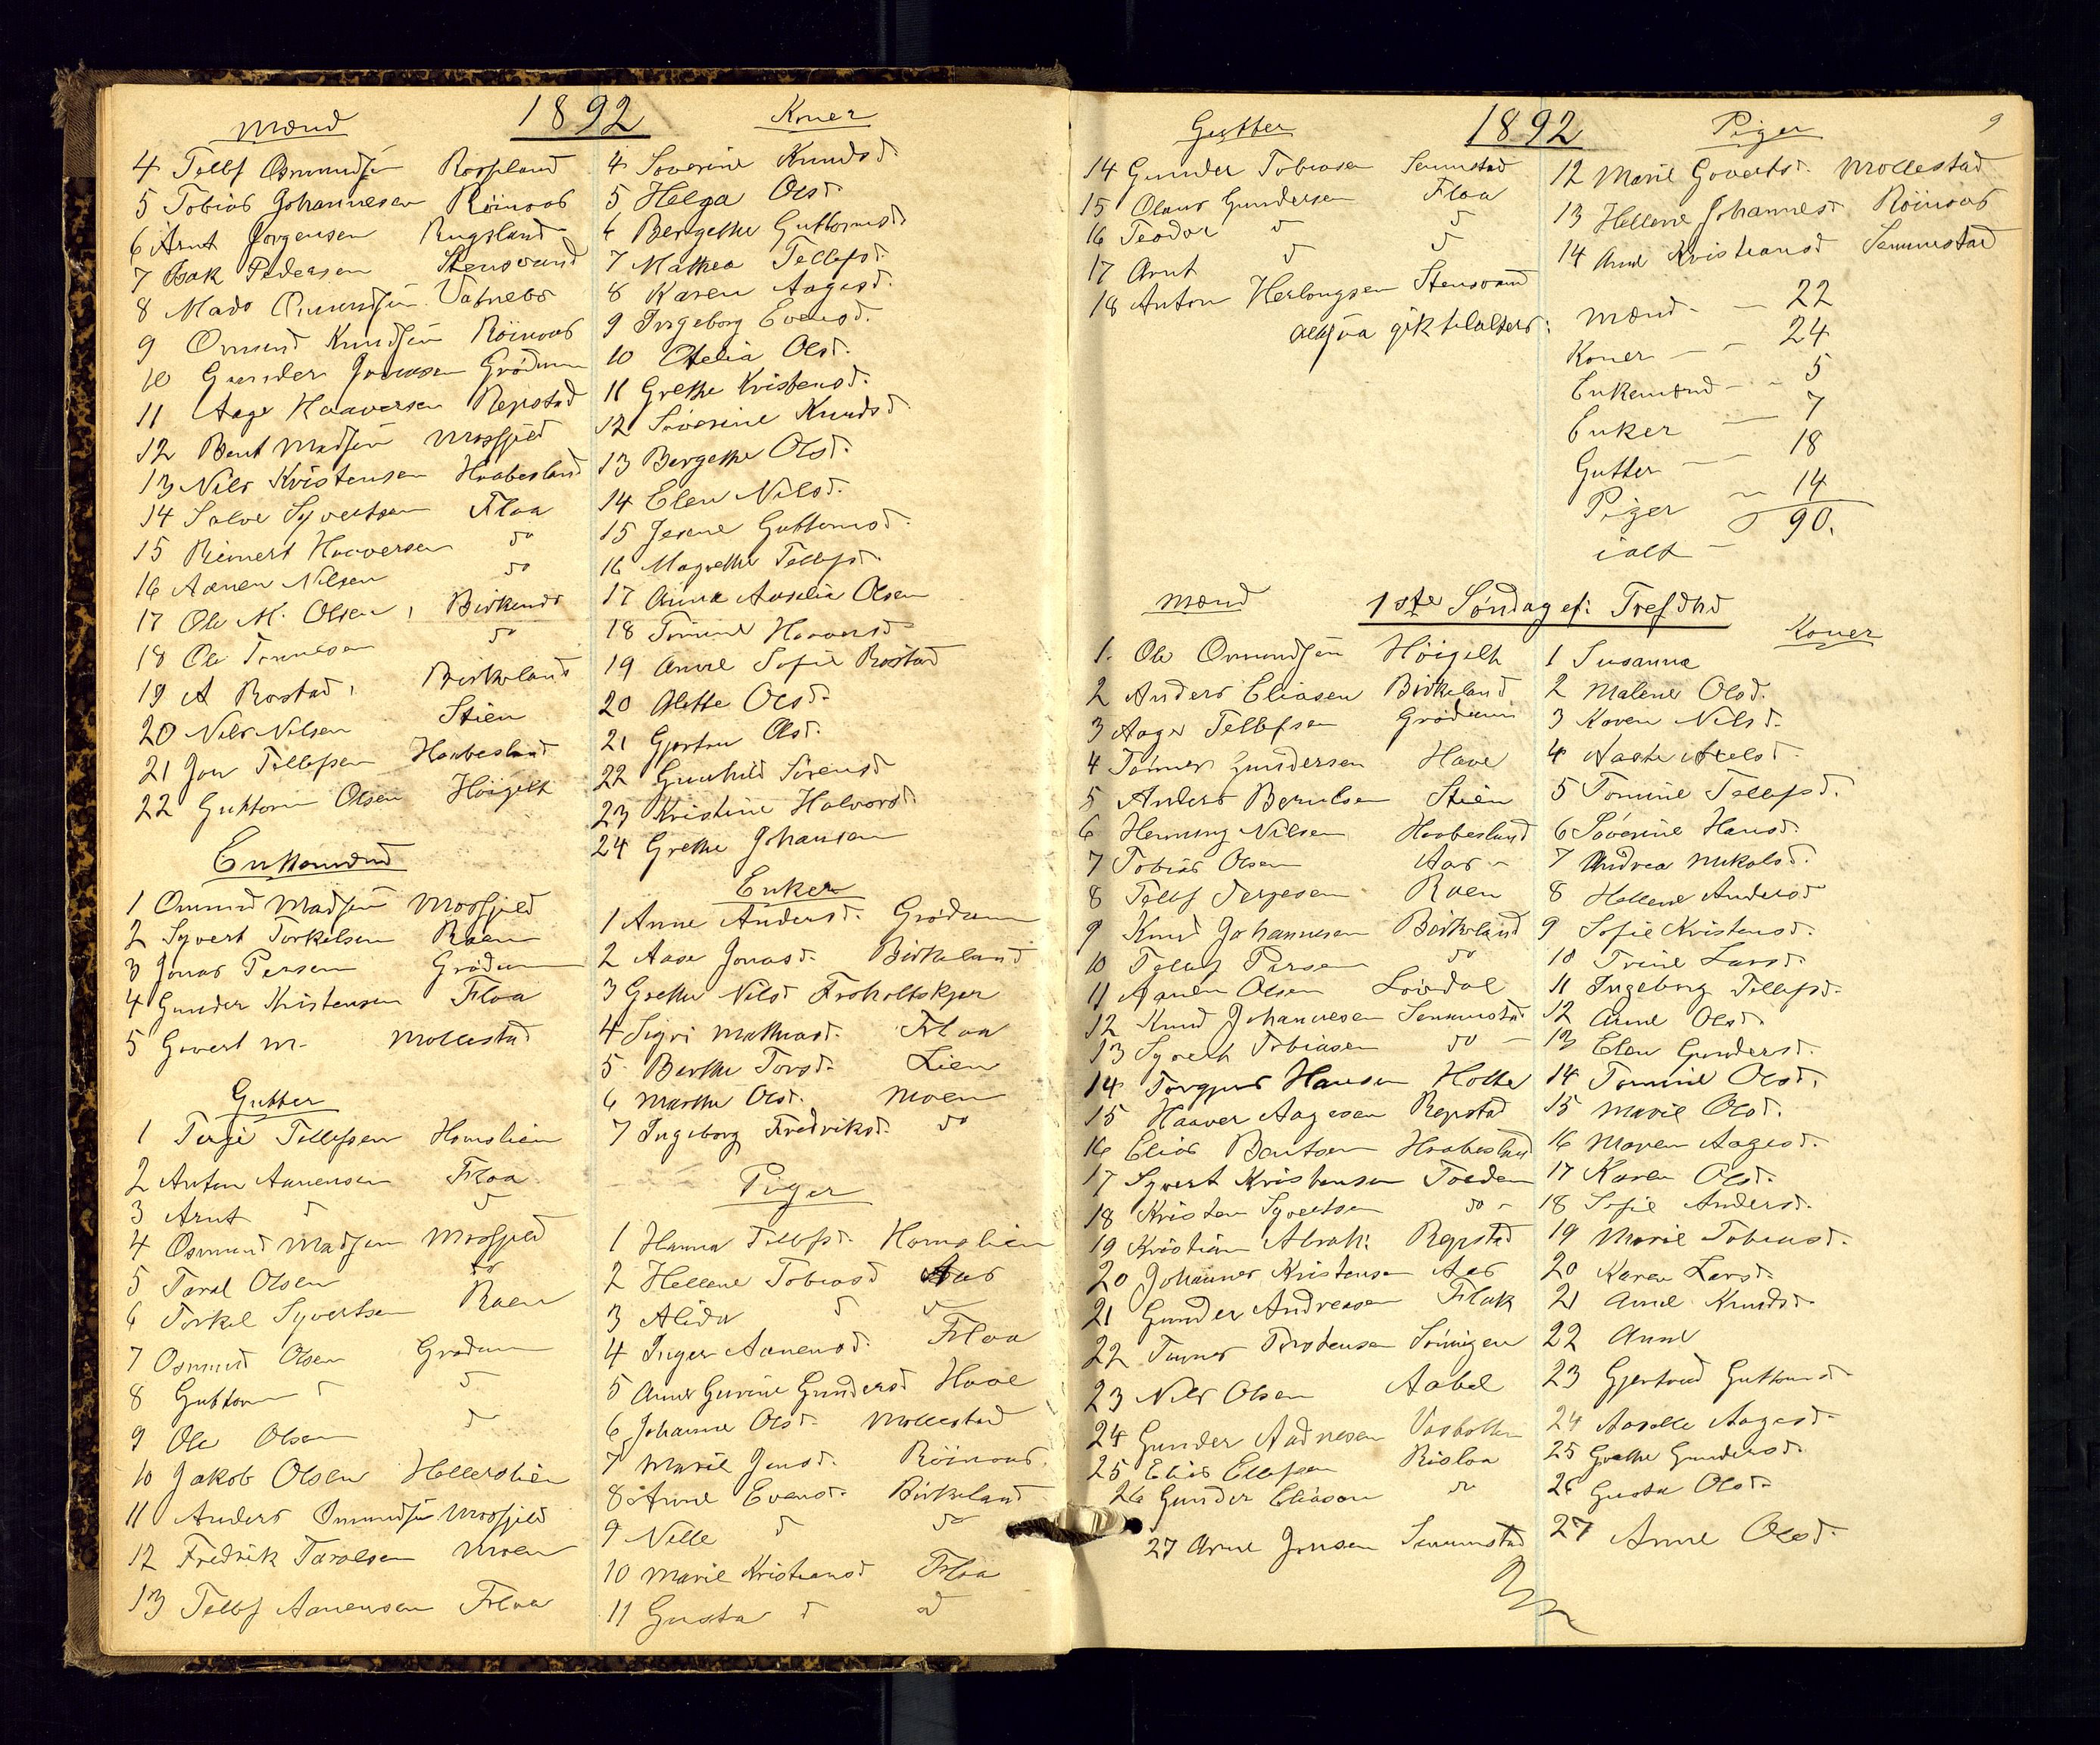 1892
Mænd
4 Tellf Osmundsen Rosseland
5 Tobias Johannesen Röinaas
6 Arnt Jørgensen Rugsland
7 Isak Pedersen Stensvand
8 Mads Osmundsen Vatnebø
9 Osmund Knudsen Röinaas
10 Gunder Jonassen Grødum
11 Aage Haaversen Repstad
12 Bent Madsen Mosfjeld
13 Nils Kristensen Haabesland
14 Salve Syvertsen Floa
15 Reinert Haaversen do
16 Aanen Nilsen do
17 Ole M. Olsen, Birkenes
18 Ole Tønnesen do
19 A Rostad, Birkeland
20 Nils Nilsen Stien
21 Jon Tellefsen Haabesland
22 Guttorm Olsen Höigilt
Enkemænd
1 Osmund Madsen Mosfjeld
2 Syvert Torkelsen Raen
3 Jonas Persen Grødum
4 Gunder Kristensen Floa
5 Govert M. Mollestad
Gutter
1 Terje Tellefsen Homslien
2 Anton Aanensen Floa
3 Arnt d d
4 Osmund Madsen Mosfjeld
5 Taral Olsen do
6 Torkel Syvertsen Raen
7 Osmund Olsen Grødum
8 Guttorm d d
9 Ole Olsen d
10 Jakob Olsen Hellerslien
11 Anders Osmundsen Mosfjeld
12 Fredrik Taralsen Moen
13 Tellf Aanensen Floa
Koner
4 Severine Knudsd.
5 Helga Olsd.
6 Bergethe Guttormsd
7 Mathea Tellefsd.
8 Karen Aagesd.
9 Ingeborg Evensd.
10 Otelia Olsd.
11 Grethe Kristensd.
12 Søverine Knudsd
13 Bergethe Olsd.
14 Elen Nilsd.
15 Jesine Guttormsd.
16 Magrethe Tellefsd.
17 Anna Aaselie Olsen
18 Tomine Haaversd
19 Anne Sofie Rostad
20 Alette Olsd.
21 Gjertru Olsd.
22 Gunhild Sørensd
23 Kristine Halvorsd.
24 Grethe Johansen
Enker
1 Anne Andersd. Grødum
2 Aase Jonasd. Birkeland
3 Grethe Nilsd Froholtskjer
4 Sigri Mathiasd. Floa
5 Berthe Torsd. Lien
6 Marthe Olsd. Moen
7 Ingeborg Fredriksd. do
Piger
1 Hanna Tellefsd. Homslien
2 Hellene Tobiasd Aas
3 Alida d d
4 Inger Aanensd. Floa
5 Anne Gurine Gundersd Have
6 Johanne Olsd. Mollestad
7 Marie Jensd. Röinaas
8 Anne Evensd. Birkeland
9 Nille d do
10 Marie Kristiansd Floa
11 Gusta d d
1892
9
Gutter
14 Gunder Tobiasen Senumstad
15 Olaus Gundersen Floa
16 Teodor d d
17 Arnt d d
18 Anton Herlougsen Stensvand
gik til alters:
Piger
12 Marie Govertsd. Mollestad
13 Hellene Johannesd Röinaas
14 Ane Kristiansd Senumstad
Mænd - 22
Koner - 24
Enkemænd - 5
Enker - 7
Gutter - 18
Piger - 14
ialt - 90.
1ste Søndag ef: Trefdhd
Mænd
1. Ole Osmundsen Höigilt
2 Anders Eliasen Birkeland
3 Aage Tellefsen Grødum
4 Tønnes Gundersen Have
5 Anders Berulsen Stien
6 Henning Nilsen Haabesland
7 Tobias Olsen Aas
8 Tellf Terjesen Raen
9 Knud Johannesen Birkeland
10 Tellef Persen do
11 Aanen Olsen Løvdal
12 Knud Johannesen Senumstad
13 Syvert Tobiasen do
14 Torgjus Hansen Holte
15 Haaver Aagesen Repstad
16 Elias Bentsen Haabesland
17 Syvert Kristensen Toeden
18 Kristen Syvertsen do
19 Kristian Abrah: Repstad
20 Johannes Kristensen Aas
21 Gunder Andreasen Flak
22 Tønnes Torstensen
23 Nils Olsen Aabel
24 Gunder Aadnesen
25 Elias Ellefsen Risloa
26 Gunder Eliasen do
27 Arne Jensen Senumstad
Koner
1 Susanna
2 Malene Olsd.
3 Karen Nilsd.
4 Aaste Axelsd.
5 Tomine Tellefsd.
6 Søverine Hansd.
7 Andrea Nikolsd.
8 Hellene Andersd
9 Sofie Kristensd.
10 Trine Larsd.
11 Ingeborg Tellefsd.
12 Anne Olsd.
13 Elen Gundersd.
14 Tomine Olsd.
15 Marie Olsd.
16 Maren Aagesd.
17 Karen Olsd.
18 Sofie Andersd.
19 Marie Tobiasd.
20 Karen Larsd.
21 Anne Knudsd.
22 Anne
23 Gjertrud Guttormsd
24 Aaselle Aagesd.
25 Grethe Gundersd.
26 Gusta Olsd.
27 Anne Olsd.